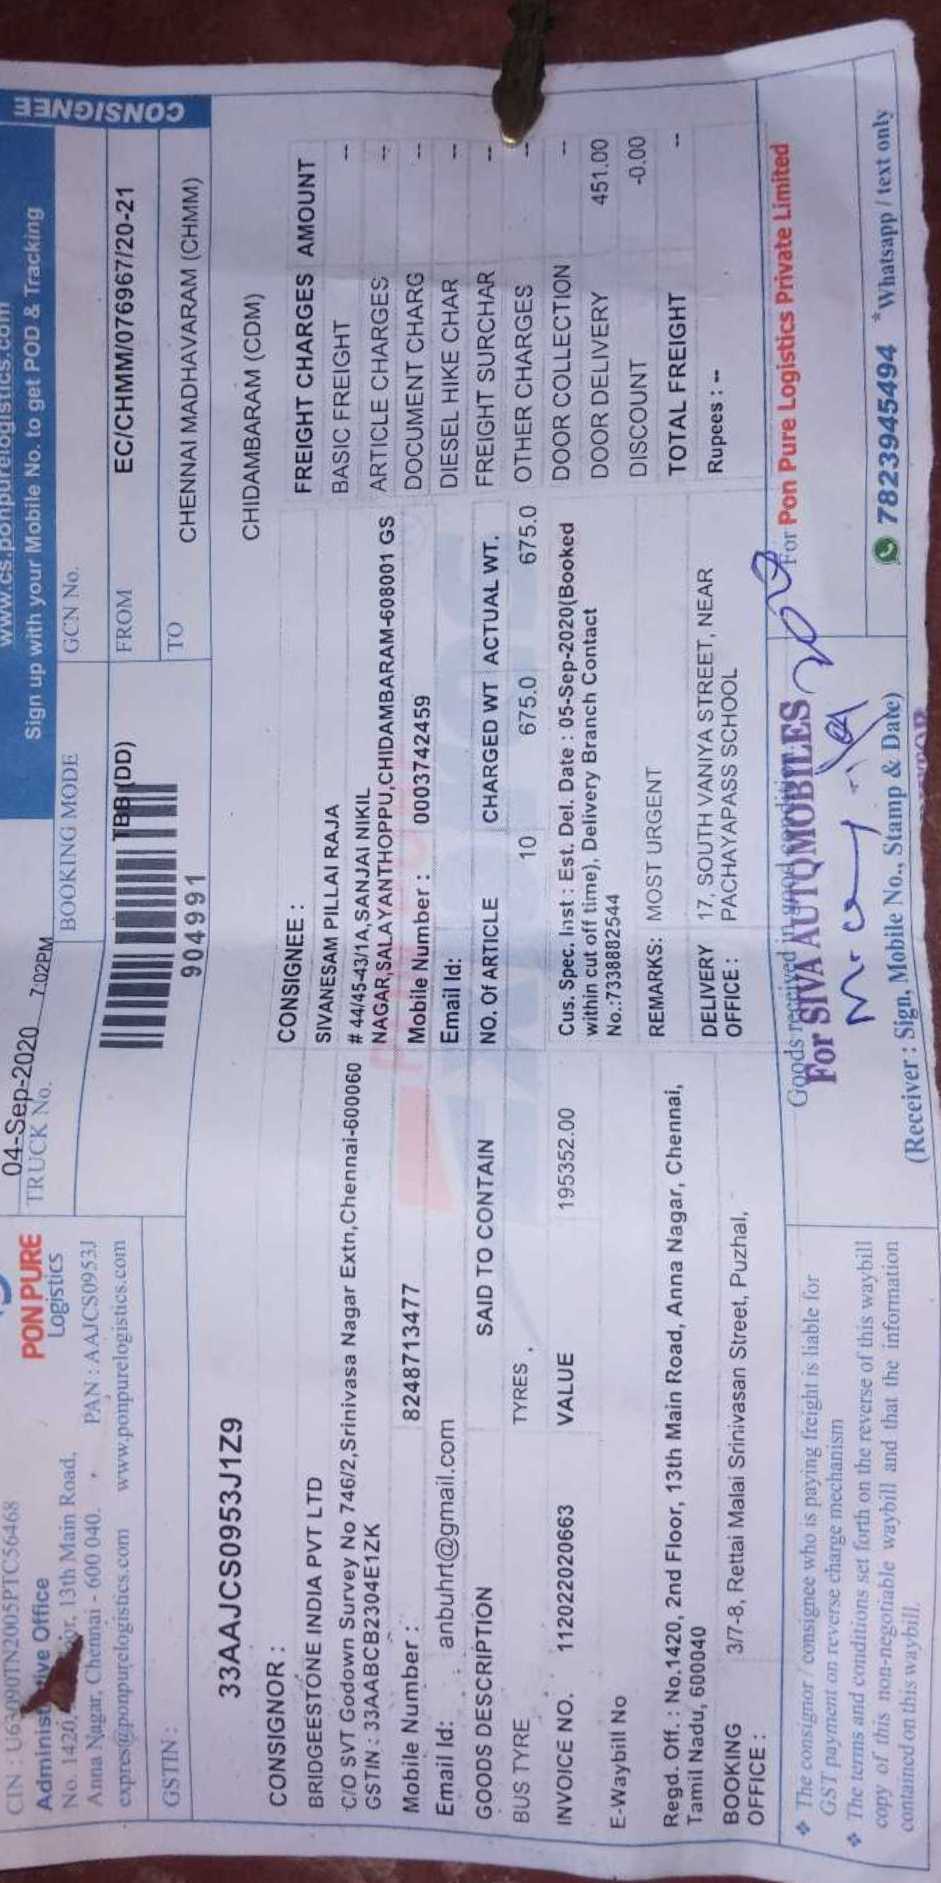 www.cs.ponpurelogistics.com
Sign up with your Mobile No. to get POD & Tracking
CONSIGNEE
CIN : U63090TN2005PTC56468
Administrative Office
No. 1420, 13th Main Road,
Anna Nagar, Chennai - 600 040.
PAN : AAJCS0953J
expres@ponpurelogistics.com www.ponpurelogistics.com
PON PURE
Logistics
04-Sep-2020 7:02PM
TRUCK No.
BOOKING MODE
TBB (DD)
904991
GCN No.
EC/CHMM/076967/20-21
FROM
CHENNAI MADHAVARAM (CHMM)
TO
CHIDAMBARAM (CDM)
GSTIN :
33AAJCS0953J1Z9
CONSIGNOR :
BRIDGEESTONE INDIA PVT LTD
C/O SVT Godown Survey No 746/2,Srinivasa Nagar Extn,Chennai-600060
GSTIN : 33AABCB2304E1ZK
Mobile Number : 8248713477
Email Id: anbuhrt@gmail.com
CONSIGNEE :
SIVANESAM PILLAI RAJA
# 44/45-43/1A,SANJAI NIKIL
NAGAR,SALAYANTHOPPU,CHIDAMBARAM-608001 GS
Mobile Number : 0003742459
Email Id:
GOODS DESCRIPTION SAID TO CONTAIN NO. Of ARTICLE CHARGED WT ACTUAL WT.
BUS TYRE TYRES , 10 675.0 675.0
INVOICE NO. 1120220220663 VALUE 195352.00
E-Waybill No
Cus. Spec. Inst : Est. Del. Date : 05-Sep-2020(Booked
within cut off time), Delivery Branch Contact
No.:7338882544
REMARKS: MOST URGENT
Regd. Off. : No.1420, 2nd Floor, 13th Main Road, Anna Nagar, Chennai,
Tamil Nadu, 600040
BOOKING OFFICE : 3/7-8, Rettai Malai Srinivasan Street, Puzhal,
DELIVERY OFFICE : 17, SOUTH VANIYA STREET, NEAR
PACHAYAPASS SCHOOL
FREIGHT CHARGES AMOUNT
BASIC FREIGHT --
ARTICLE CHARGES --
DOCUMENT CHARG --
DIESEL HIKE CHAR --
FREIGHT SURCHAR --
OTHER CHARGES --
DOOR COLLECTION --
DOOR DELIVERY 451.00
DISCOUNT -0.00
TOTAL FREIGHT --
Rupees : --
❖ The consignor / consignee who is paying freight is liable for
GST payment on reverse charge mechanism
❖ The terms and conditions set forth on the reverse of this waybill
copy of this non-negotiable waybill and that the information
contained on this waybill.
Goods received in good condition
For SIVA AUTOMOBILES
(Receiver : Sign, Mobile No., Stamp & Date)
For Pon Pure Logistics Private Limited
7823945494 *Whatsapp / text only